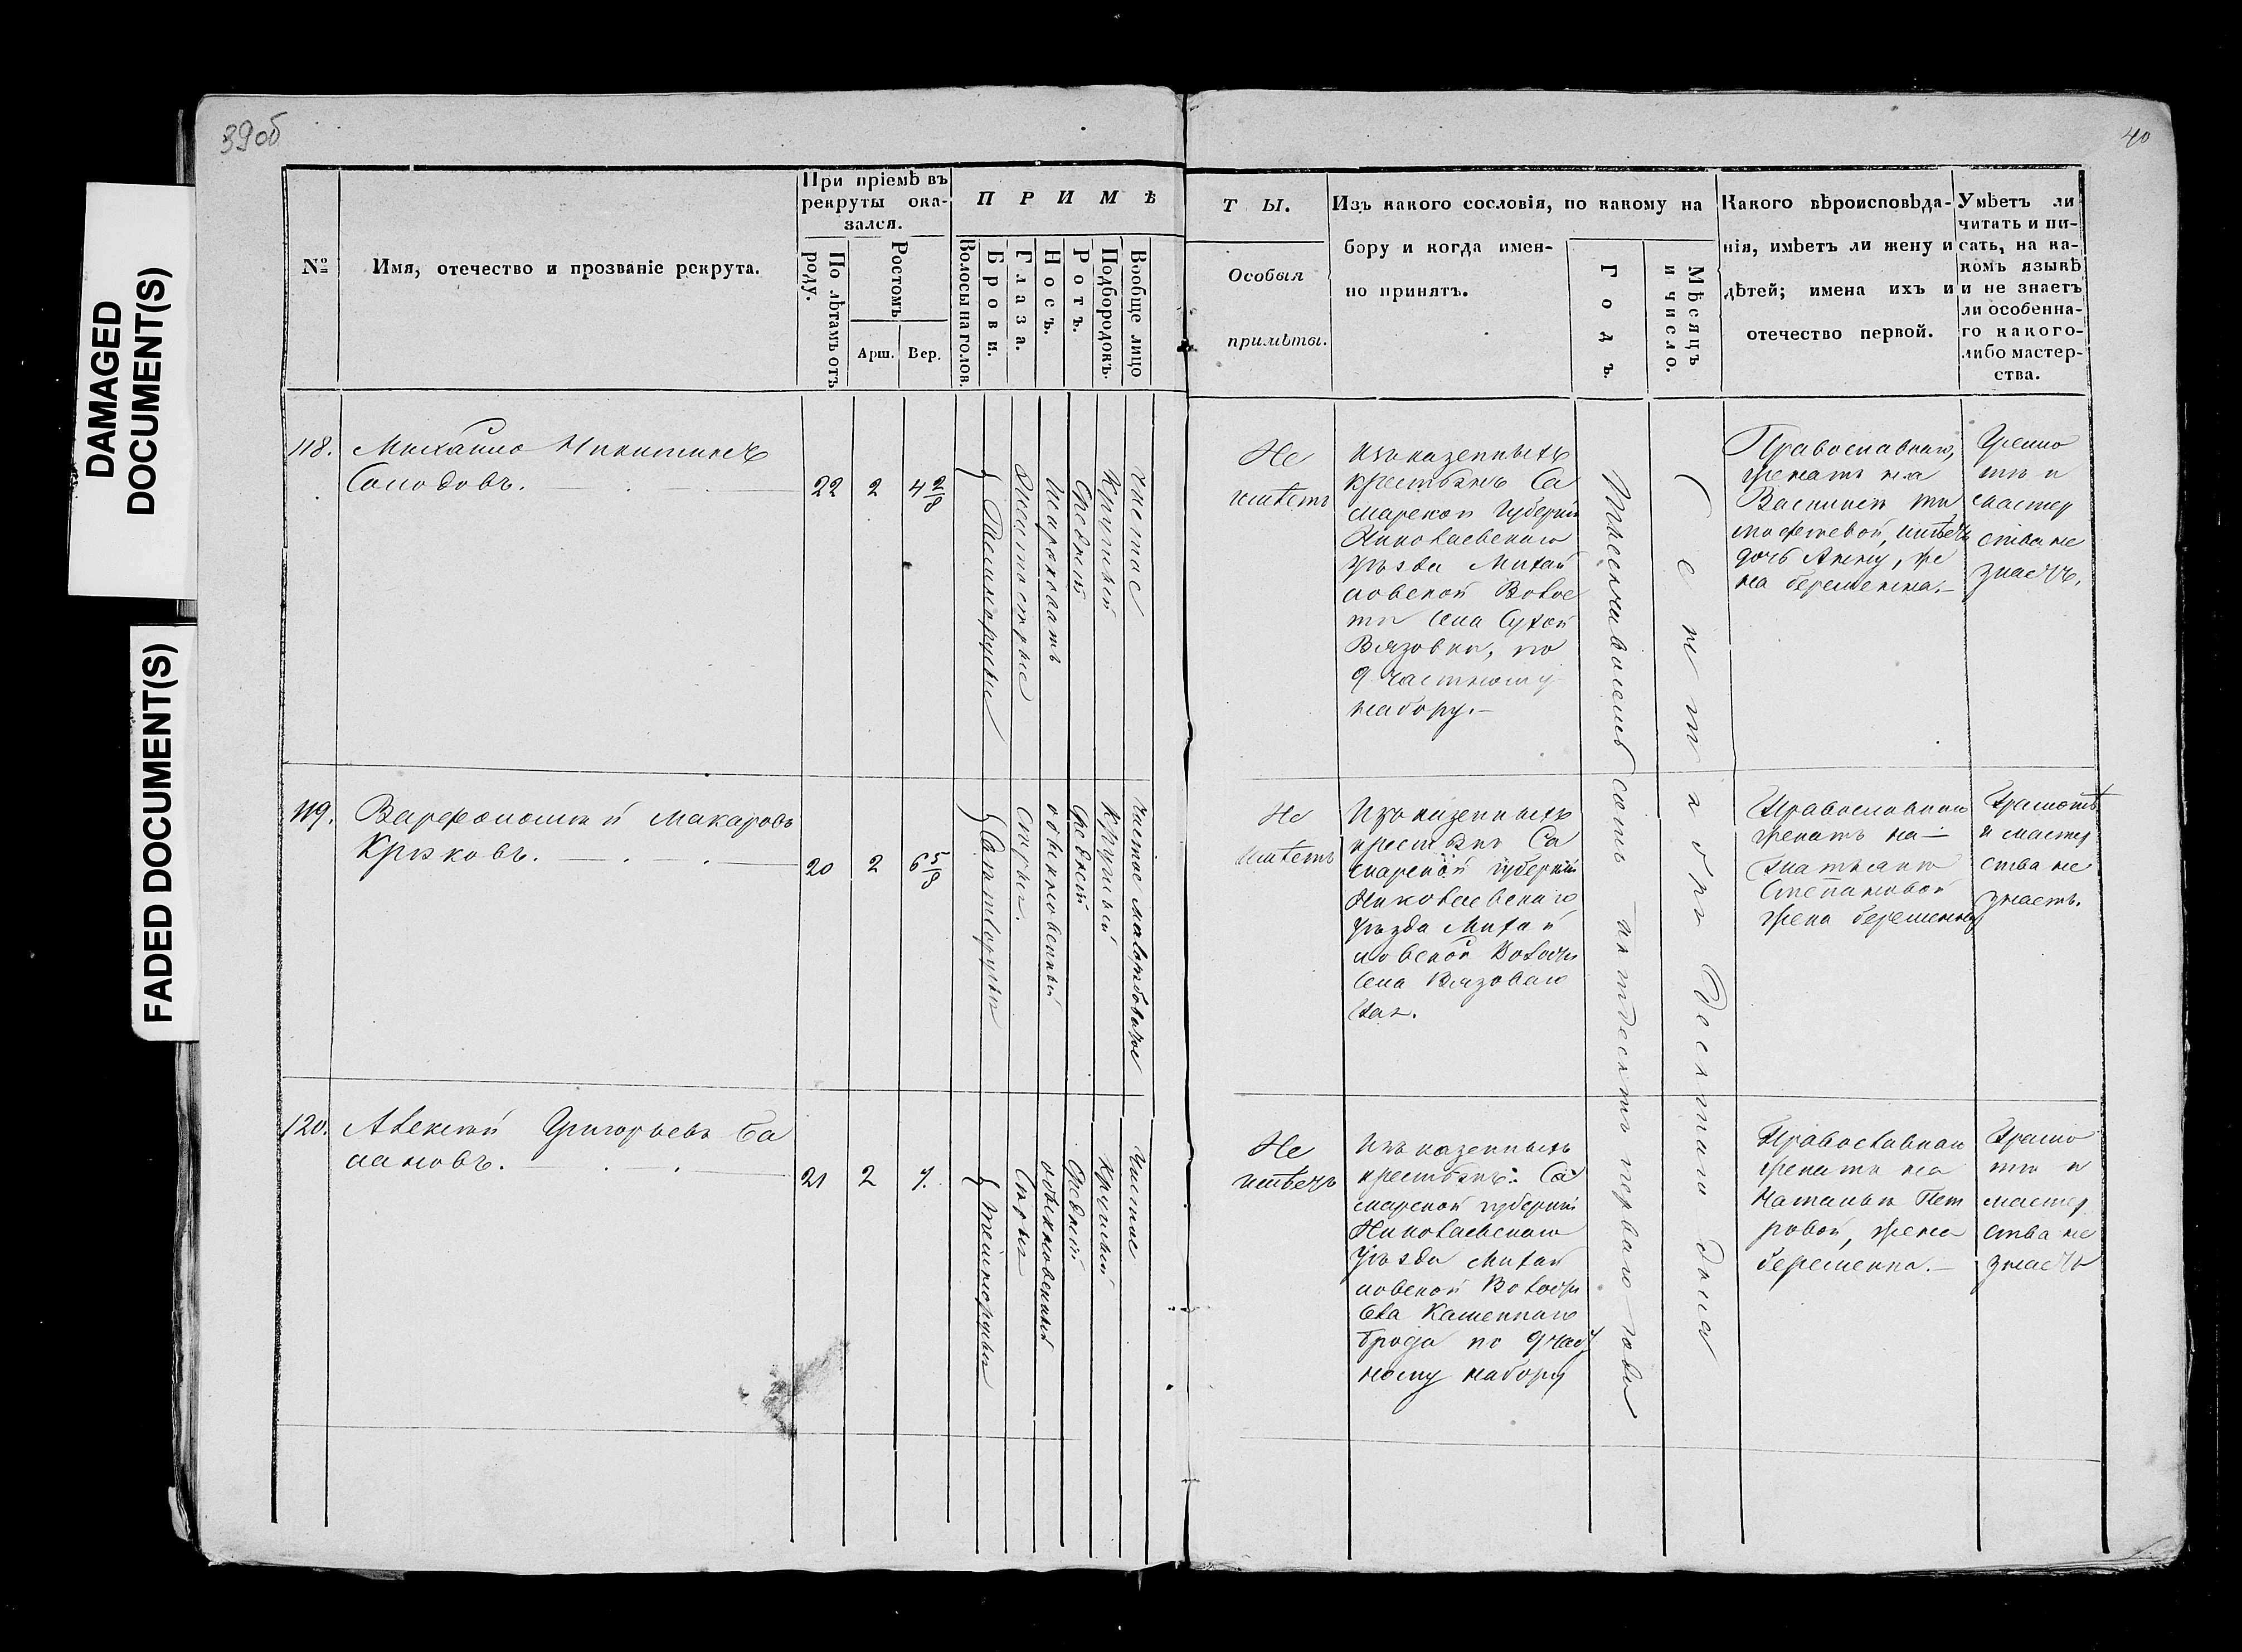 39об
40
DAMAGED
DOCUMENT(S)
FADED DOCUMENT(S)
№
Имя, отечество и прозваніе рекрута.
При пріемѣ въ
рекруты ока-
зался.
По лѣтамъ отъ
роду.
Ростомъ
Арш.
Вер.
П Р И М Ѣ
Волосы на голов.
Брови.
Глаза.
Носъ.
Ротъ.
Подбородокъ.
Вообще лицо
Т Ы.
Особыя
примѣты.
Изъ какого сословія, по какому на
бору и когда имен-
но принятъ.
Годъ.
Мѣсяцъ
и число.
Какого вѣроисповѣда-
нія, имѣетъ ли жену и
дѣтей; имена ихъ и
отечество первой.
Умѣетъ ли
читать и пи-
сать, на ка-
комъ языкѣ
и не знаетъ
ли особенна-
го какого-
либо мастер-
ства.
118.
Михайло Никитинъ
Солодовъ.
22
2
4 2/8
Темнорусые
Широковатъ
Средній
Круглый
Чистое
Не
имѣетъ
Изъ казенныхъ
крестьянъ Са
марской Губерніи
Николаевскаго
уѣзда Михай
ловской Волос
ти села Сухой
Вязовки, по
9 частному
набору.
Православнаго,
женатъ на
Василисѣ Ти
мофеевой, имѣетъ
дочь Анну, же
на беременна.
Грамо
тѣ и
мастер
ства не
знаетъ.
119.
Варфоломей Макаровъ
Крюковъ.
20
2
6 5/8
Светлорусые
Серые.
обыкновенный
Средній
Круглый
чистое
Не
имѣетъ
Изъ казенныхъ
крестьянъ Са
марской губерніи
Николаевскаго
уѣзда Михай
ловской Волости
Села Вязоваго
Гая.
Православнаго
женатъ на
Степановой
жена беременна
Грамотѣ
и мастер
ства не
знаетъ.
120.
Алексей Григорьевъ Ба
лановъ.
21
2
7.
Темнорусые
Серые
обыкновенный
Средній
Круглый
Чистое
Не
имѣетъ
Изъ казенныхъ
крестьянъ Са
марской губерніи
Николаевскаго
уѣзда Михай
ловской Волости
Села Каменнаго
Брода по 9 част
ному набору
Тысяча восемь сотъ пятьдесятъ перваго года
Сентября Десятаго дня
Православнаго
женатъ на
Натальѣ Пет
ровой, жена
беременна.
Грамо
тѣ и
мастер
ства не
знаетъ